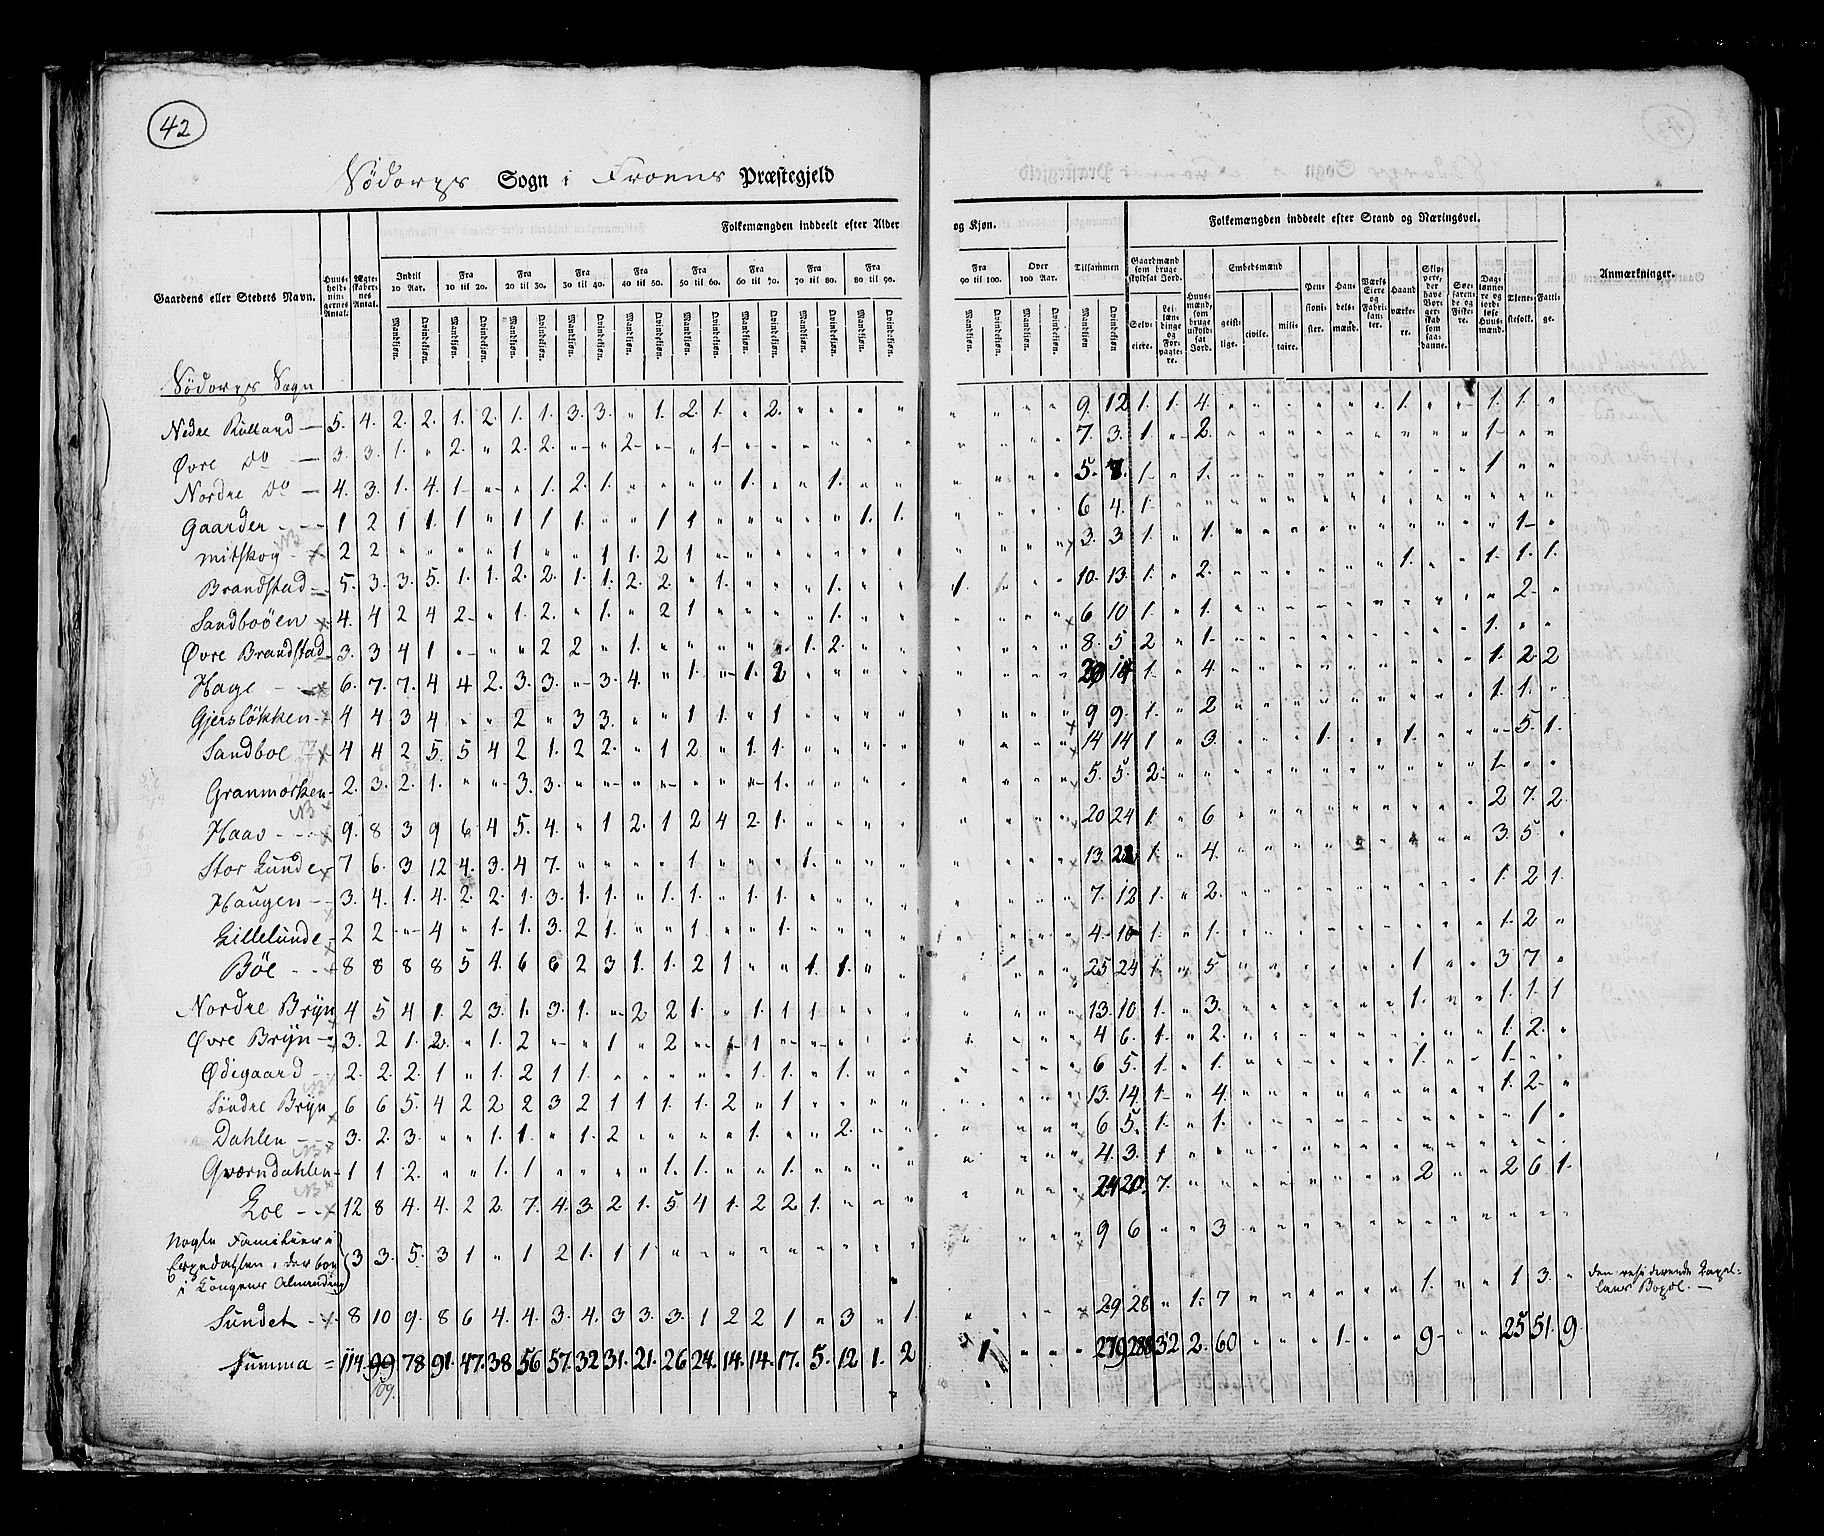 42
Södorps Sogn i Froens Præstegjeld
Folkemængden inddeelt efter Alder og Kjøn.
Folkemængden inddeelt efter Stand og Næringsvei.
Gaardens eller Stedets Navn.
Huusholdningernes Antal.
Ægteskabernes Antal.
Indtil 10 Aar.
Fra 10 til 20.
Fra 20 til 30.
Fra 30 til 40.
Fra 40 til 50.
Fra 50 til 60.
Fra 60 til 70.
Fra 70 til 80.
Fra 80 til 90.
Fra 90 til 100.
Over 100 Aar.
Tilsammen
Mandkjøn. Qvindekjøn.
Gaardmænd som bruge skyldsat Jord.
Selveiere.
Leilændinge og Forpagtere.
Huusmænd, som bruge uskyldsat Jord.
Embedsmænd
geistlige. civile. militaire.
Pensionister.
Handelsmænd.
Værks Eiere og Fabrikanter.
Haandværkere.
Skippere, der have Borgerskab som saadanne.
Søefarende og Fiskere.
Daglønnere og jordløse Huusmænd.
Tjenestefolk.
Fattige.
Anmærkninger.
Södorps Sogn
Nedre Rulland 5. 4. 2. 2. 1. 2. 1. 1. 3. 3. " 1. 2. 1. " 2. " " " " 9. 12 1. 1. 4. 1. 1. 1.
Øvre Do 3. 3. 1. " 2. " 2. 2. " " 2 " " 1 7. 3. 1. " 2. 1
Nordre Do 4. 3. 1. 4. 1 " " 1. 2. 1. " " " " 1. " " 1. " " 5. 8. 1 " 1. 1
Gaarder 1 2 1 1. 1 " 1 1 1. " " 1 1 " " " " " 1. 1. 6 4. 1.
Mitskog 2 2 " " " " 1 " " 1 1. 2 1 3. 3. 1. " 1. 1
Brandstad 5. 3. 3. 5. 1. 1. 2. 2. 1. 1. 2. 2. " 1. " " " 1. " " 1. 10. 13. 1. " 2. 1. 1. 1. 1.
Sandboöen 4. 4 2 4 2 " 1. 2. " 1. " 2 1 " " " " 1. " " 6 10 1. " 1. 2.
Øvre Brandstad 3. 3 4 1 " " " 2 2 " 1. " " " " " 1. 2. " " 8. 5 2 " 1 1.
Hage 6. 7. 7. 4 4 2. 3. 3. " 3. 4. " 1. " 1. 2 " " " " 20 14 1. " 4. 1. 2. 2
Gjerslökken 4 4 3 4 " " 2 " 3 3. " " 1 1. " 1 " " " " 9 9. 1. " 2 1. 1.
Sandboe 4 4 2 5. 5 4 2 1. 2 2. " 1 2 " 1. 1. " " " " 14 14 1 " 3. 1. 1. 5. 1.
Granmorken 2. 3. 2. 1. " " 3. 3. " " " " " " " 1. " " " " 5. 5. 2. 1.
Haav 9. 8 3 9 6. 4 5. 4. " 1 2. 1 2 4 2. 1. " " " " 20 24 1. " 6 2 7. 2.
Stor Lunde 7 6. 3 12 4. 3. 4 7. " " " " 1. " " " 1. " " " 13. 1. " 4. 3. 5.
Haugen 3. 4. 1. 4. 2. 2. 1. 3. 1. 1. " 1. 1. " 1. 1. " " " " 7. 12 1. " 2. 1. 2 1.
Lillelunde 2 2 " 4 " 1. 1. 3. 2 1. " " 1 " " 1. " " " " 4 10 1. " 1. 1. 2
Böe 8 8 8 8 5 4. 6 6 2 3 1. 1. 2 1 " " 1. 1. " " 25 24 1 " 5 1 3 7
Nordre Bryn 4 5 4 1. 2 3. 1. 3. 1. " 2 2 1. " 1. 1. 1. " " " 13. 10 1. " 3. 1. 1. 1. 1
Øvre Bryn 3. 2 1. 2. " 1. 2 " " 1 " 2 " " 1 " " " " " 4 6. 1. " 2. 1. 2.
Ødegaard 2. 2. 2. 1 " 1. 2 1 1. " " " " " 1. 1. " 1. " " 6 5. 1. " 1. 1. 1
Söndre Bryn 6 6 5. 4 2 2 2 3 2 1 1 1. 1. 2 " 1 " " " " 13. 14. 1 " 4. 1. 2
Dahlen 3. 2. 3. " " 1. 1. " 1. 2 " " " " 1. " " 2. " " 6 5. 1. " 1. 1
Qværndahlen 1 1 2. " " 1. 1 " " " " 1. 1. " " 1. " " " " 4. 3. 1
Loe 12 8 4. 4. 2 2. 7. 4. 3. 2 1. 5 4 1. 2 2. 1. " " " 24 20. 7. 2 2 6 1.
Nogle Familier i
der boe
i Kongens Almending 3 3. 5. 3 1 " 1 2 1. 1 1 " " " " " " " " " 9 6 " " 3
Sundet 8 10 9. 8 6 4. 4. 3. 4. 3 3. 3. 1 2 2 1 " 3 " 1. 29 28 " 1. 7 1. 1 3.
den residerende Capellans Bopæl.
Summa = 114. 99 78 91. 47. 38 56 57. 32 31. 21. 26 24. 14. 14. 17. 5. 12 1. 2 1 279 288 32 2. 60 1. 9 25 51. 9
109.